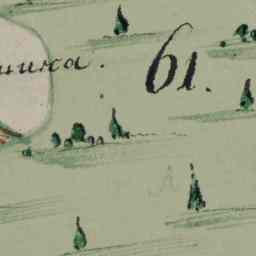 шика. 61.